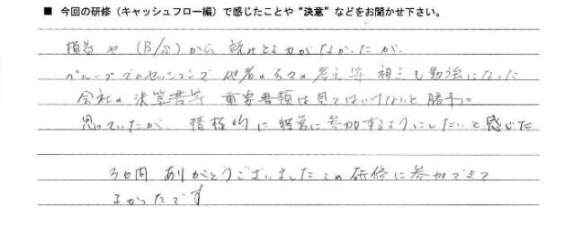 ■ 今回の研修（キャッシュフロー編）で感じたことや“決意”などをお聞かせ下さい。
損益や（B/S）から読みとる力がなかったが、
グループでのセッションで他者の考え等、勉強になった
会社の決算書等 重要書類は見てはいけないと勝手に
思っていたが、積極的に経営に参加するようにしたいと感じた
3日間ありがとうございました この研修に参加できて
よかったです